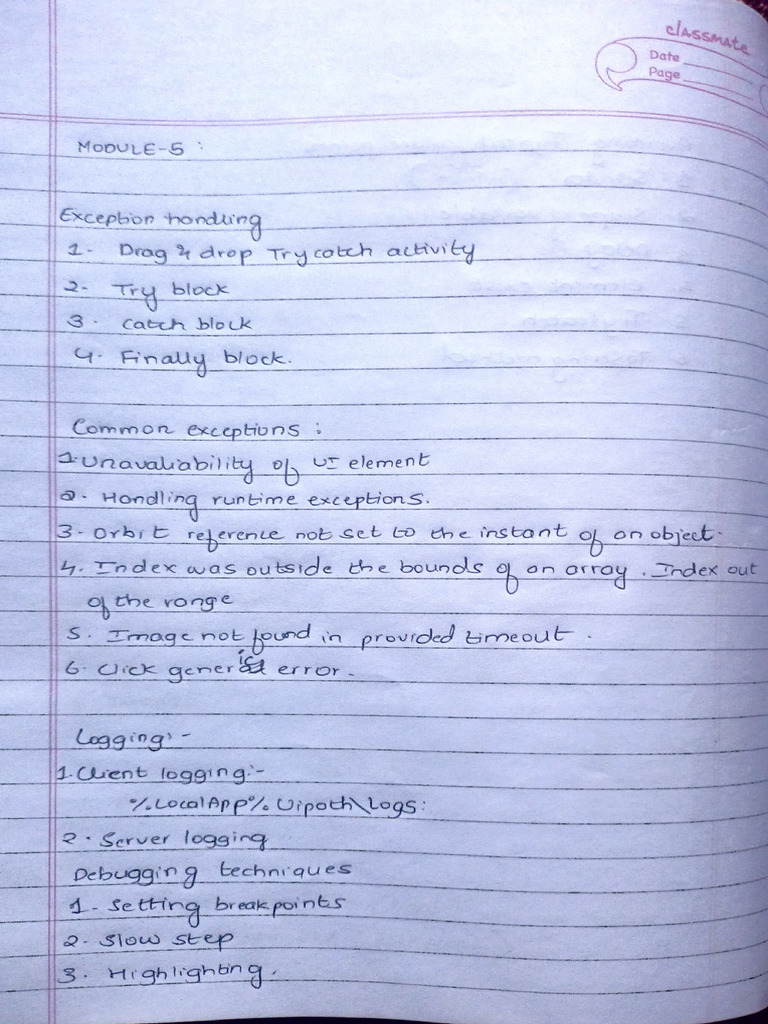 classmate
Date
Page
MODULE-5 :
Exception handling
1- Drag & drop Try catch activity
2- Try block
3. catch block
4. Finally block.
Common exceptions :
1.Unavaliability of UI element
2. Handling runtime exceptions.
3. Orbit reference not set to the instant of an object.
4. Index was outside the bounds of an array. Index out
of the range
5. Image not found in provided timeout.
6. Click generic error.
Logging:-
1.Client logging:-
%LocalApp% Uipath\Logs:
2. Server logging
Debugging techniques
1- Setting breakpoints
2- Slow step
3. Highlighting.